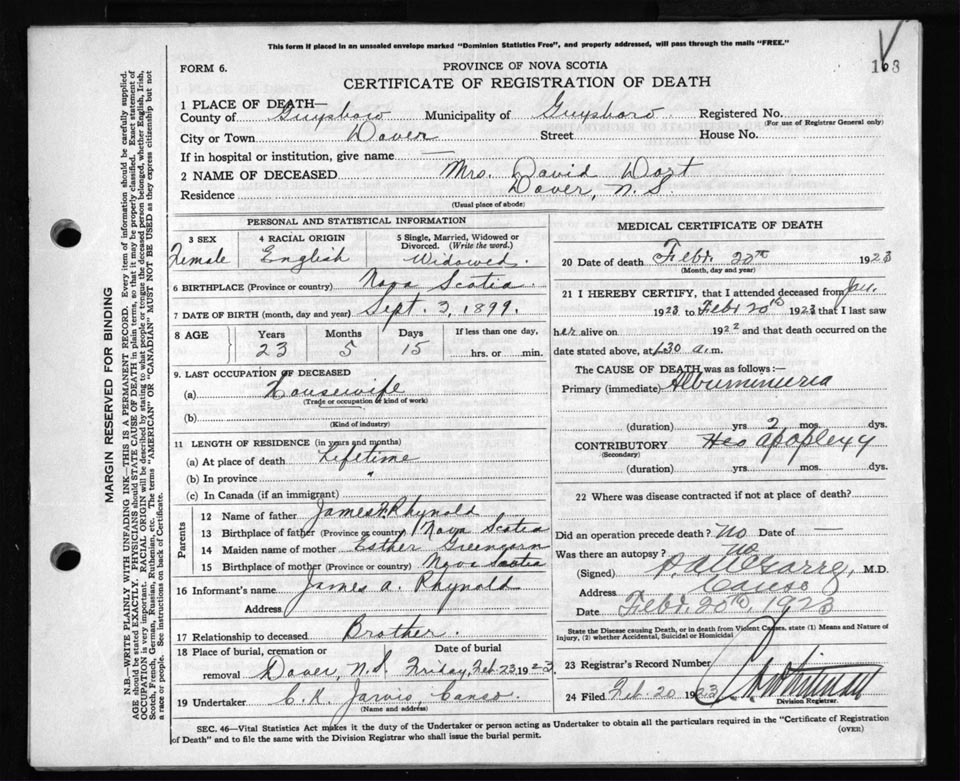 This form if placed in an unsealed envelope marked "Dominion Statistics Free", and properly addressed, will pass through the mails "FREE."
FORM 6.
PROVINCE OF NOVA SCOTIA
CERTIFICATE OF REGISTRATION OF DEATH
1 PLACE OF DEATH—
County of Guysboro Municipality of Guysboro Registered No.
(For use of Registrar General only)
City or Town Dover Street House No.
If in hospital or institution, give name —
2 NAME OF DECEASED Mrs. David Wort
Residence Dover, N.S.
(Usual place of abode)
PERSONAL AND STATISTICAL INFORMATION
3 SEX Female
4 RACIAL ORIGIN English
5 Single, Married, Widowed or Divorced. (Write the word.) Widowed.
6 BIRTHPLACE (Province or country) Nova Scotia
7 DATE OF BIRTH (month, day and year) Sept. 3, 1899.
8 AGE Years 23 Months 5 Days 15 If less than one day, hrs. or min.
9. LAST OCCUPATION OF DECEASED
(a) Housewife
(Trade or occupation or kind of work)
(b)
(Kind of industry)
11 LENGTH OF RESIDENCE (in years and months)
(a) At place of death Lifetime
(b) In province "
(c) In Canada (if an immigrant)
Parents
12 Name of father James Rhynold
13 Birthplace of father (Province or country) Nova Scotia
14 Maiden name of mother Esther Greencorn
15 Birthplace of mother (Province or country) Nova Scotia
16 Informant's name James A. Rhynold
Address
17 Relationship to deceased Brother.
18 Place of burial, cremation or removal Dover, N.S. Date of burial Friday, Feb. 23 1923.
19 Undertaker C. R. Jarvis, Canso.
(Name and address)
MEDICAL CERTIFICATE OF DEATH
20 Date of death Feb. 20th 1923
(Month, day and year)
21 I HEREBY CERTIFY, that I attended deceased from Jan.
1923 to Feb 20th 1923 that I last saw
her alive on 1922 and that death occurred on
date stated above, at 1.30 a.m.
The CAUSE OF DEATH was as follows:—
Primary (immediate) Albuminuria
(duration) yrs. 2 mos. dys.
CONTRIBUTORY apoplexy
(Secondary)
(duration) yrs. mos. dys.
22 Where was disease contracted if not at place of death?
Did an operation precede death? No Date of —
Was there an autopsy? no
(Signed) M.D.
Address Canso
Date Feb. 20th, 1923
State the Disease causing Death, or in death from Violent Causes, state (1) Means and Nature of Injury, (2) whether Accidental, Suicidal or Homicidal
23 Registrar's Record Number
24 Filed Feb. 20 1923
Division Registrar.
SEC. 46—Vital Statistics Act makes it the duty of the Undertaker or person acting as Undertaker to obtain all the particulars required in the "Certificate of Registration
of Death" and to file the same with the Division Registrar who shall issue the burial permit.
(OVER)
MARGIN RESERVED FOR BINDING
N.B.—WRITE PLAINLY WITH UNFADING INK—THIS IS A PERMANENT RECORD. Every item of information should be carefully supplied.
AGE should be stated EXACTLY. PHYSICIANS should STATE CAUSE OF DEATH in plain terms, so that it may be properly classified. Exact statement of
OCCUPATION is very important. RACIAL ORIGIN will be described by stating to what people or tongue the deceased person belonged, whether English, Irish,
Scotch, French, German, Russian, Ruthenian, etc. The terms "AMERICAN" OR "CANADIAN" MUST NOT BE USED as they express citizenship but not
a race or people. See instructions on back of Certificate.